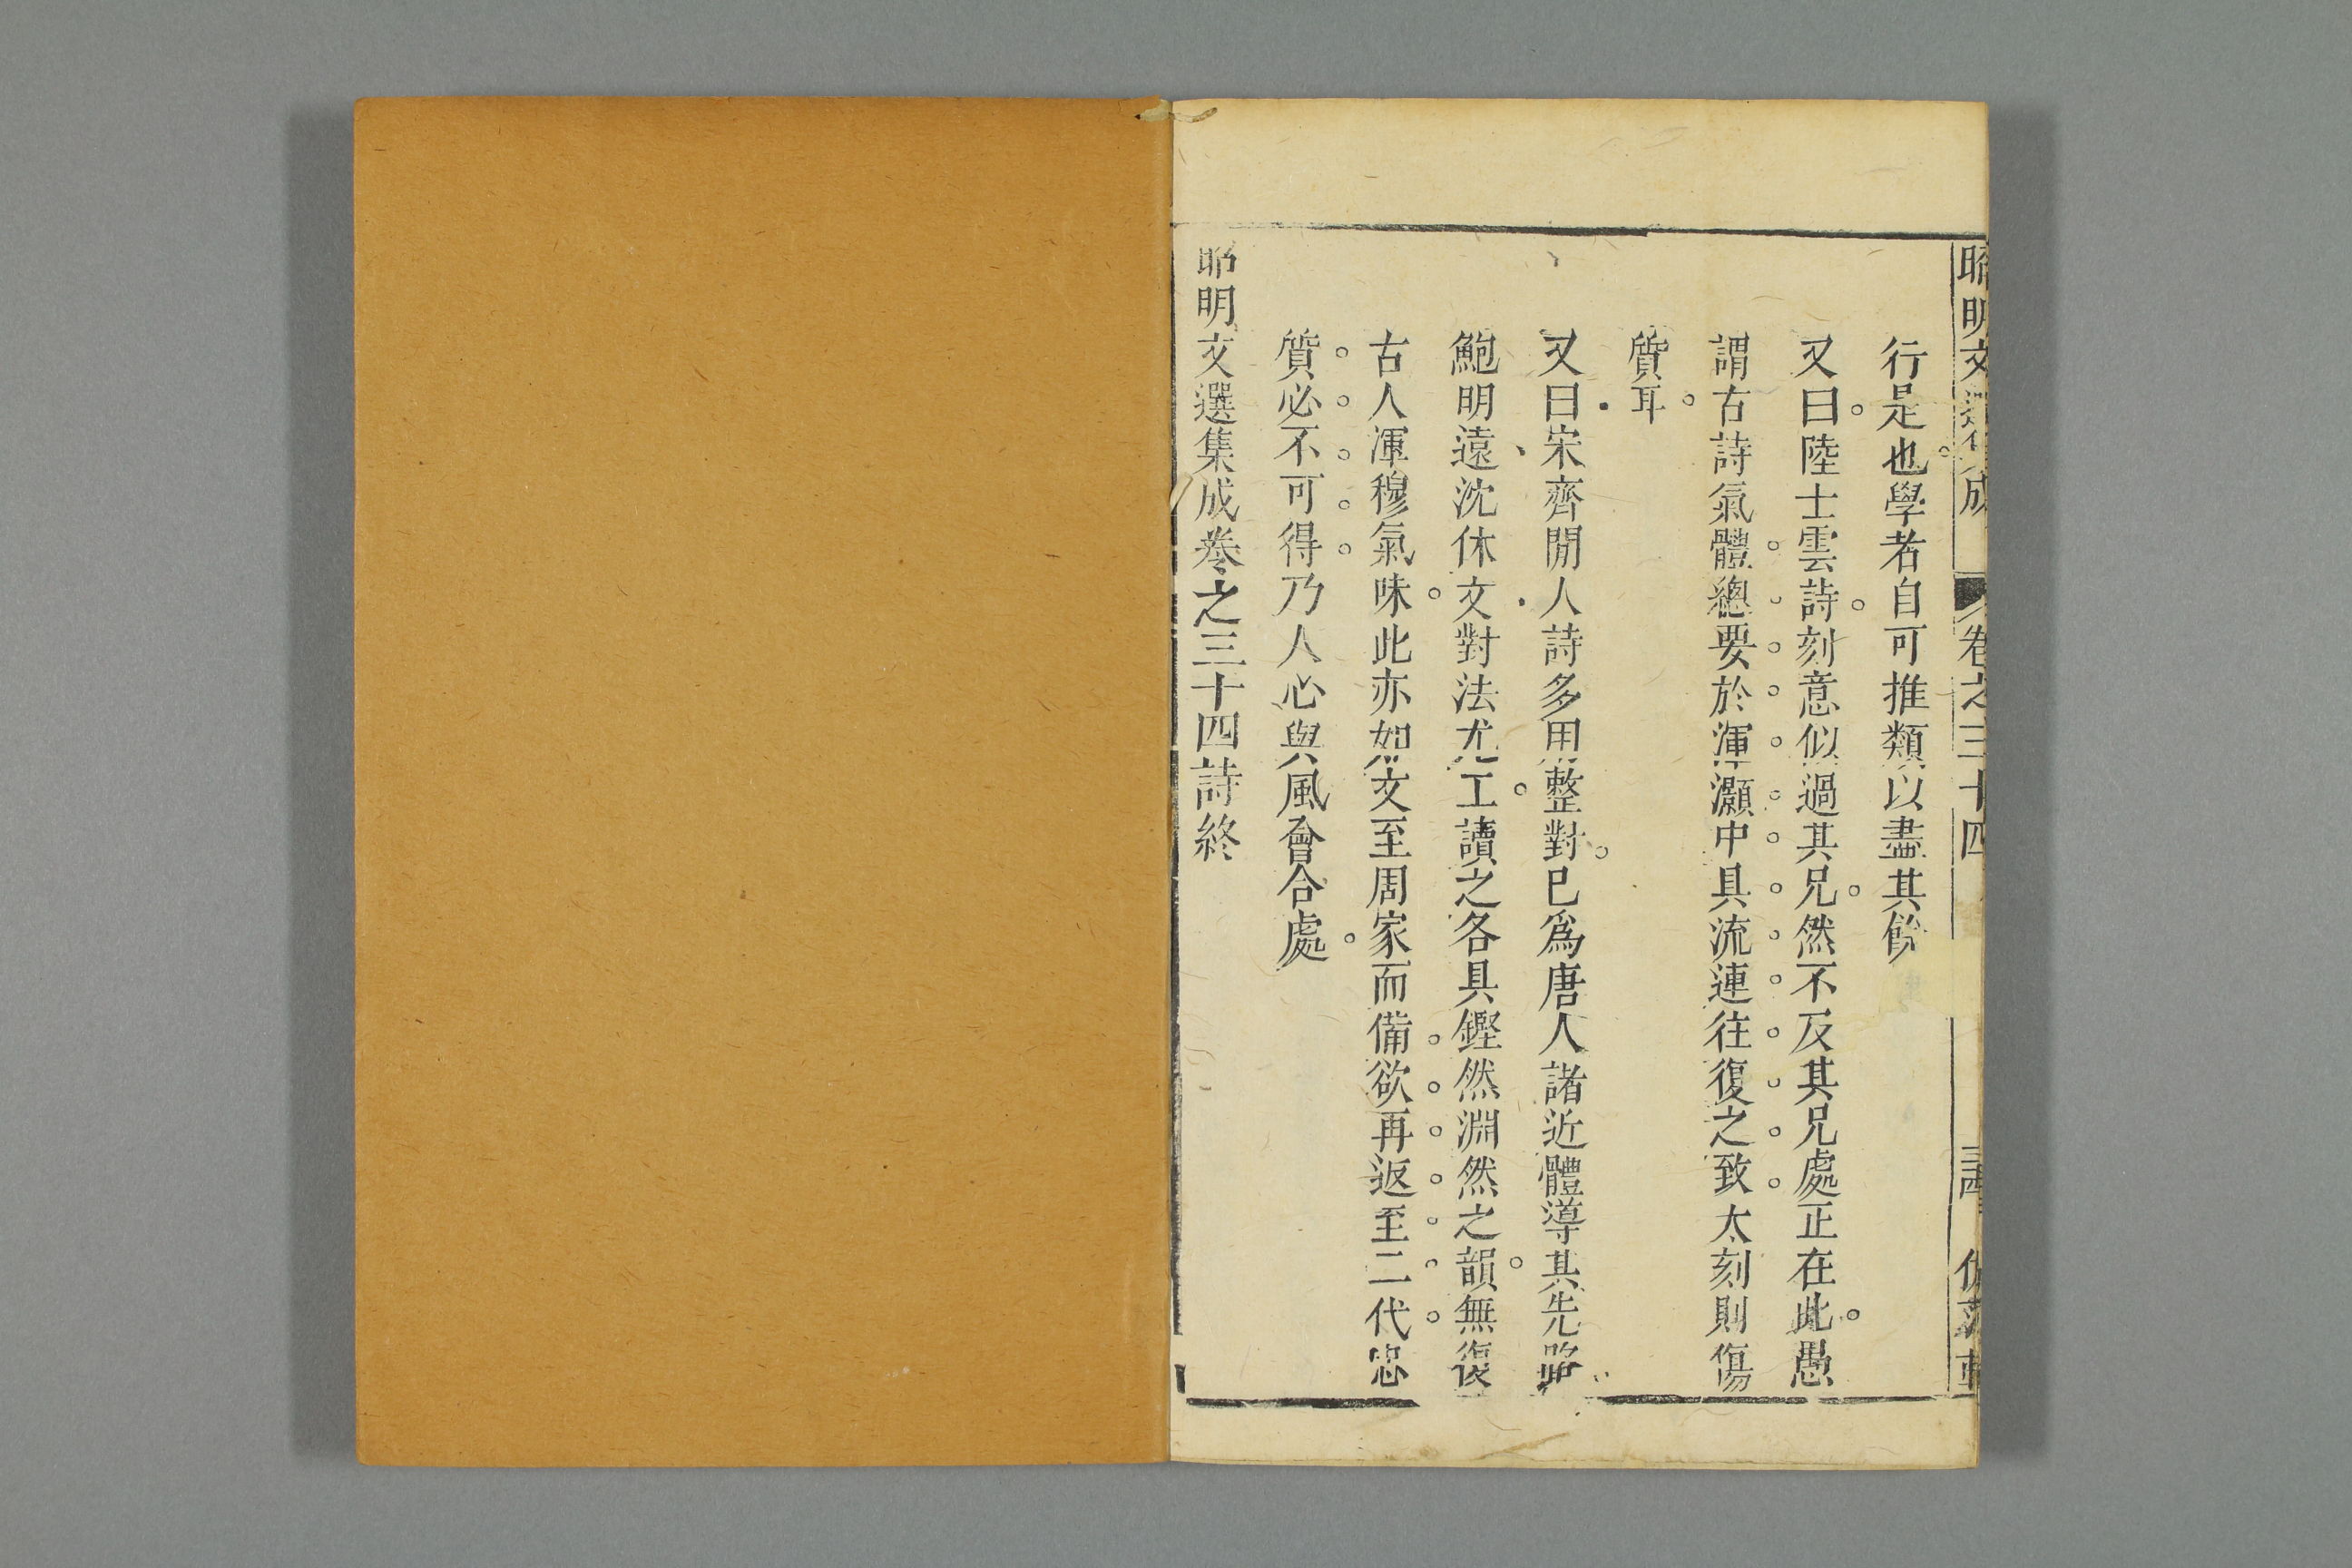 昭明文選集成 卷之三十四
行是也學者自可推類以盡其餘
又曰陸士雲詩刻意似過其兄然不及其兄處正在此愚
謂古詩氣體總要於渾灝中具流連往復之致太刻則傷
質耳
又曰宋齊閒人詩多用整對已爲唐人諸近體導其先路
鮑明遠沈休文對法尤工讀之各具鏗然淵然之韻無復
古人渾穆氣味此亦如文至周家而備欲再返至二代忠
質必不可得乃人心與風會合處
昭明文選集成卷之三十四詩終